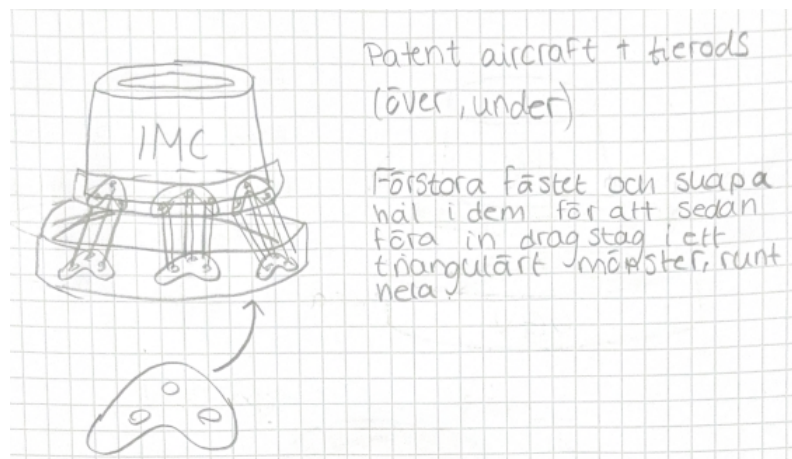 Patent aircraft + tierods
(över, under)
IMC
Förstora fästet och skapa
hål i dem för att sedan
föra in dragstag i ett
triangulärt mönster, runt
hela.